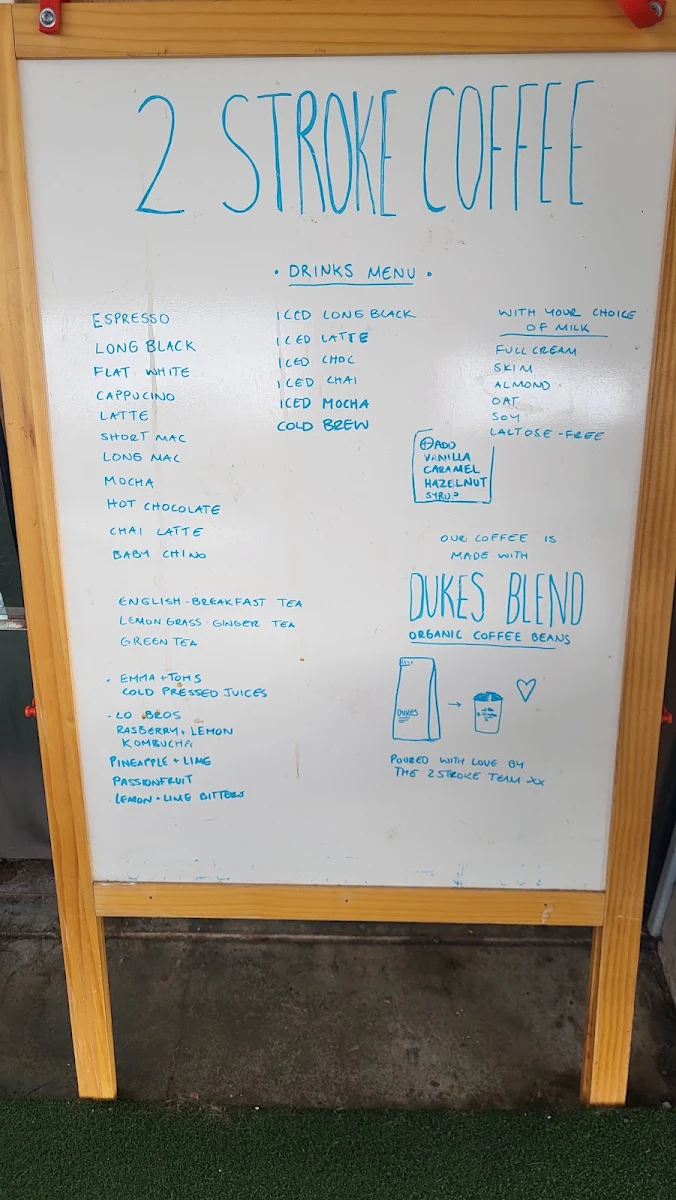 2 STROKE COFFEE
• DRINKS MENU •
ESPRESSO
LONG BLACK
FLAT WHITE
CAPPUCINO
LATTE
SHORT MAC
LONG MAC
MOCHA
HOT CHOCOLATE
CHAI LATTE
BABY CHINO
ICED LONG BLACK
ICED LATTE
ICED CHOC
ICED CHAI
ICED MOCHA
COLD BREW
WITH YOUR CHOICE
OF MILK
FULL CREAM
SKIM
ALMOND
OAT
SOY
LACTOSE-FREE
⊕ ADD
VANILLA
CARAMEL
HAZELNUT
SYRUP
OUR COFFEE IS
MADE WITH
DUKES BLEND
ORGANIC COFFEE BEANS
DUKES
POURED WITH LOVE BY
THE 2 STROKE TEAM XX
ENGLISH-BREAKFAST TEA
LEMON GRASS-GINGER TEA
GREEN TEA
• EMMA + TOMS
COLD PRESSED JUICES
• LO BROS
RASBERRY + LEMON
KOMBUCHA
PINEAPPLE + LIME
PASSIONFRUIT
LEMON-LIME BITTERS